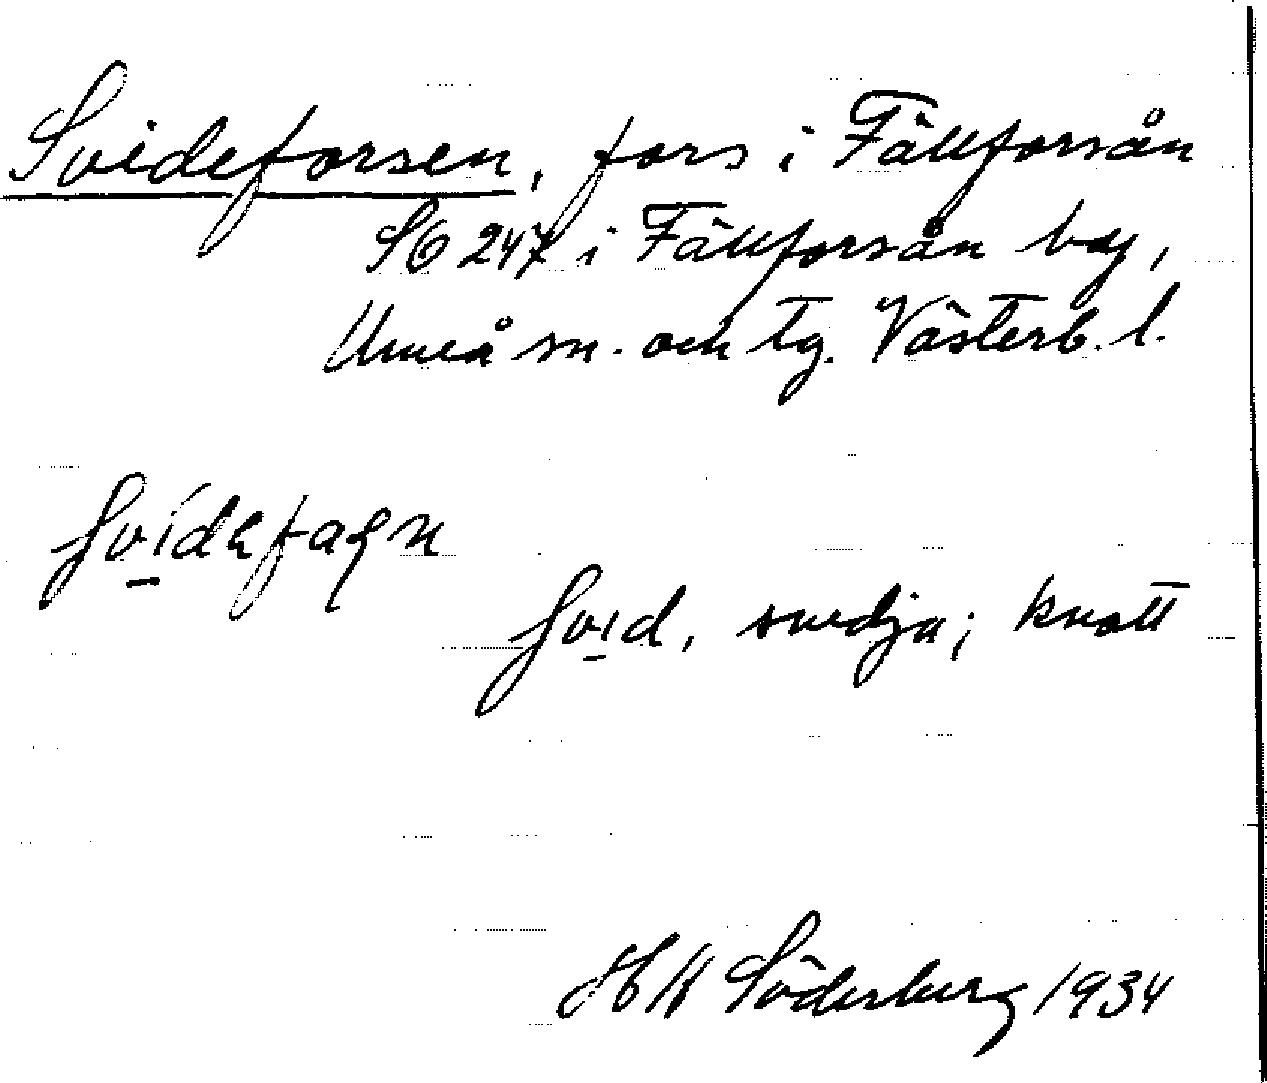 Svideforsen, fors i Fällforsån
SO 247 i Fällforsån by,
Umeå sn. och tg. Västerb. l.
svídefaʂn
svid, svedja; knott
H W Söderberg 1934